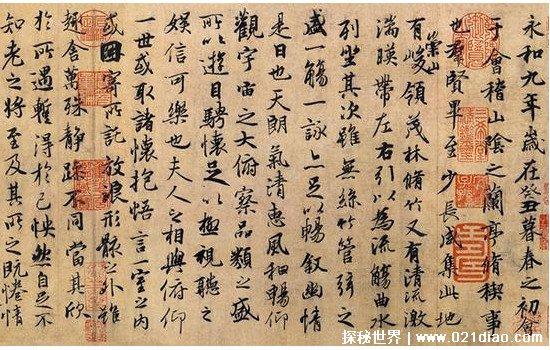 永和九年歲在癸丑暮春之初會
于會稽山陰之蘭亭脩稧事
也群賢畢至少長咸集此地
有崇山峻領茂林脩竹又有清流激
湍暎帶左右引以為流觴曲水
列坐其次雖無絲竹管弦之
盛一觴一詠亦足以暢敘幽情
是日也天朗氣清惠風和暢仰
觀宇宙之大俯察品類之盛
所以遊目騁懷足以極視聽之
娛信可樂也夫人之相與俯仰
一世或取諸懷抱悟言一室之內
或因寄所託放浪形骸之外雖
趣舍萬殊靜躁不同當其欣
於所遇蹔得於己怏然自足不
知老之將至及其所之既惓情
探秘世界 | www.021diao.com